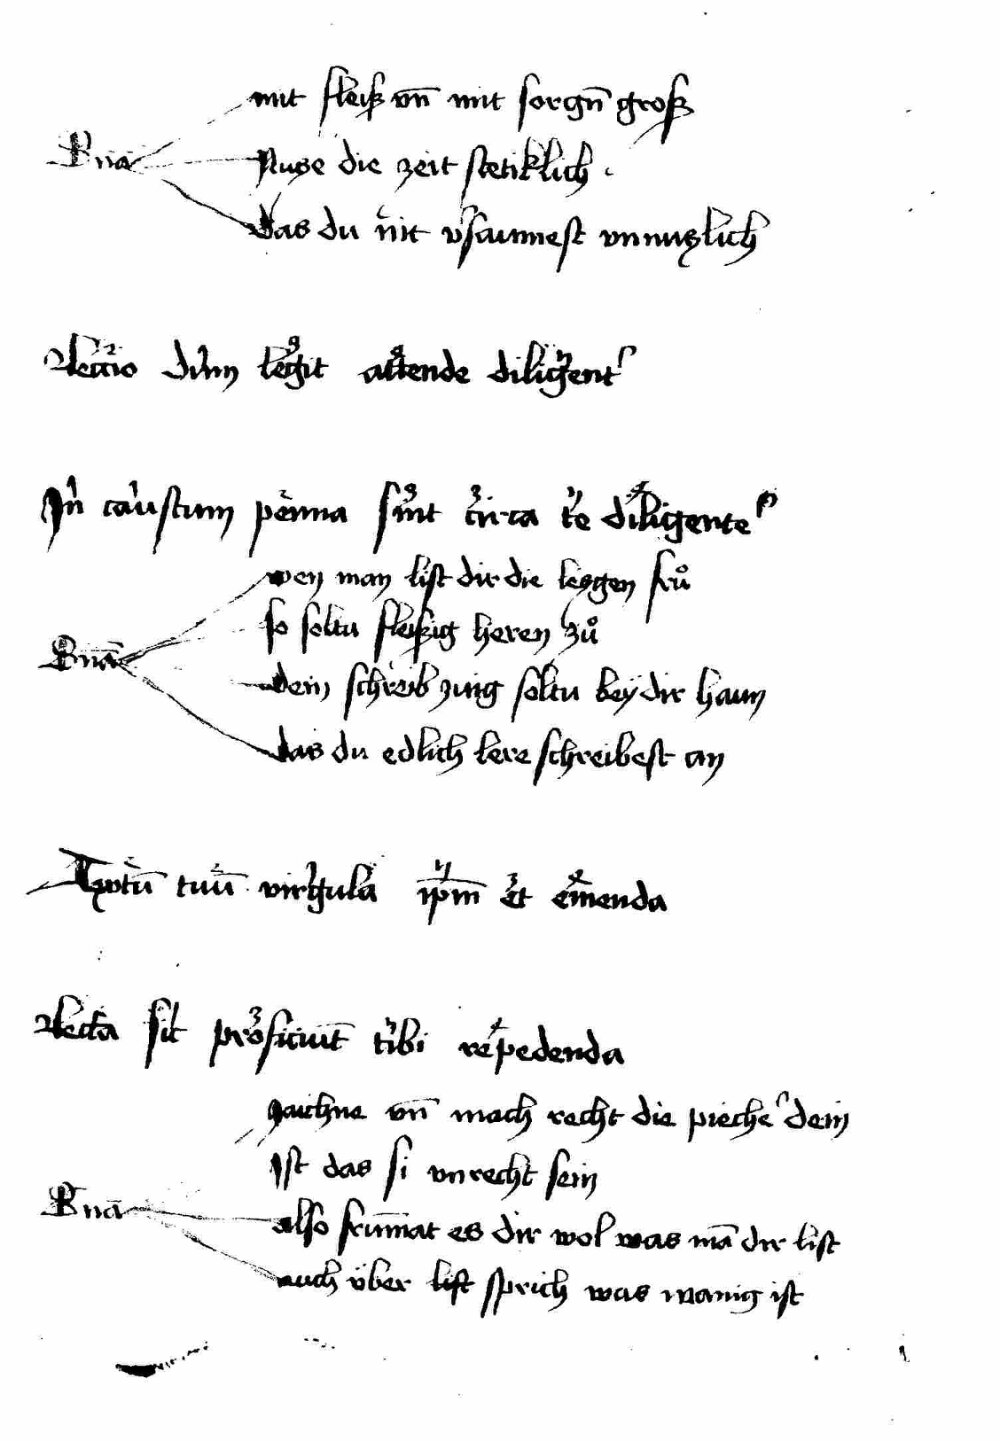 mit fleiß vn̄ mit sorgn̄ groß
Rnā
Nuze die zeit stetiklich
das du nit v͛saumest vnnuzlich
Leccio dum legit attende diligent͛
In caustum penna sint circa te diligente͛
wen man list dir die leczgen fru̇
so soltu fleißig heren zů
Rnā
dein schreib zuig soltu bey dir haun
das du edlich lere schreibest an
tuū virgula ip̄m et em̄enda
Lecta sit proficiūt tibi repedenda
zaichne vn̄ mach recht die pieche͛ dein
Ist das si vnrecht sein
Rnā
also frum̄at es dir wol was mā dir list
auch über list sprich was manig ist